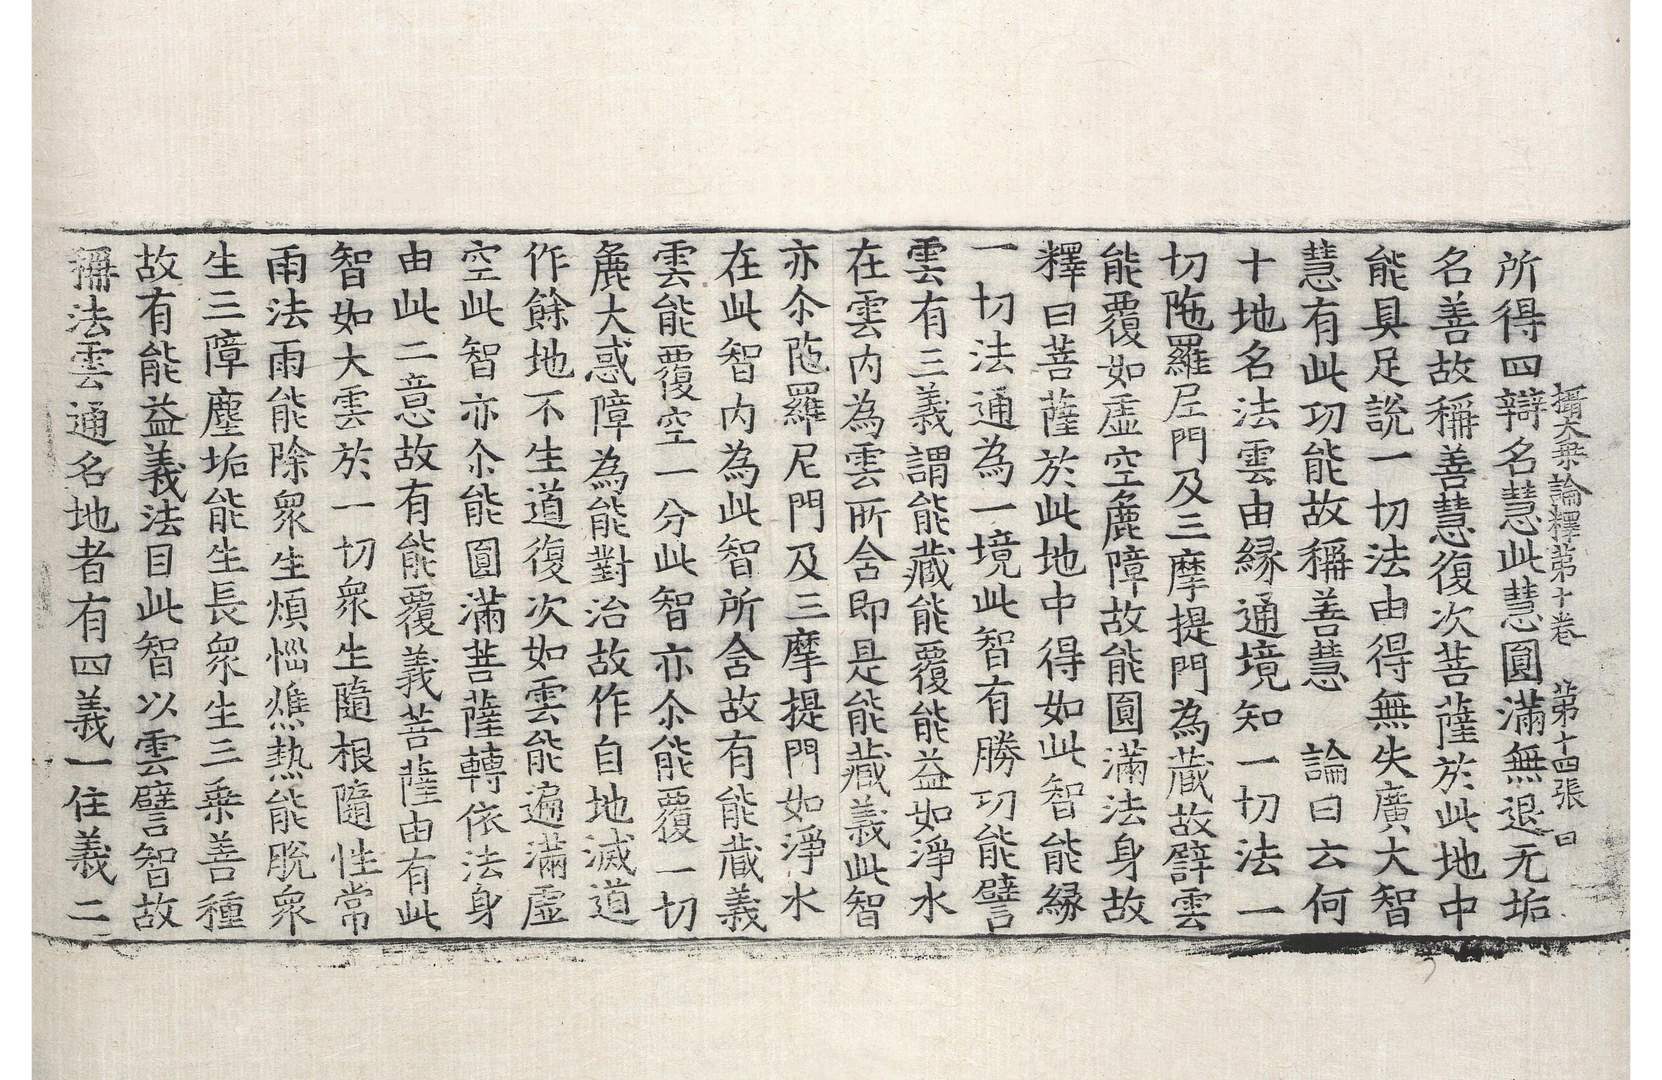 攝大乗論釋第十卷　第十四張　曰
所得四辯名慧此慧圓滿無退无垢
名善故稱善慧復次菩薩於此地中
能具足說一切法由得無失廣大智
慧有此功能故稱善慧　論曰云何
十地名法雲由緣通境知一切法一
切陁羅尼門及三摩提門為藏故譬雲
能覆如虛空麁障故能圓滿法身故
釋曰菩薩於此地中得如此智能緣
一切法通為一境此智有勝功能譬
雲有三義謂能藏能覆能益如淨水
在雲內為雲所含即是能藏義此智
亦尒陁羅尼門及三摩提門如淨水
在此智內為此智所含故有能藏義
雲能覆空一分此智亦尒能覆一切
麁大惑障為能對治故作自地滅道
作餘地不生道復次如雲能遍滿虛
空此智亦尒能圓滿菩薩轉依法身
由此二意故有能覆義菩薩由有此
智如大雲於一切衆生隨根隨性常
雨法雨能除衆生煩惱燋熱能脫衆
生三障塵垢能生長衆生三乗善種
故有能益義法目此智以雲譬智故
稱法雲通名地者有四義一住義二